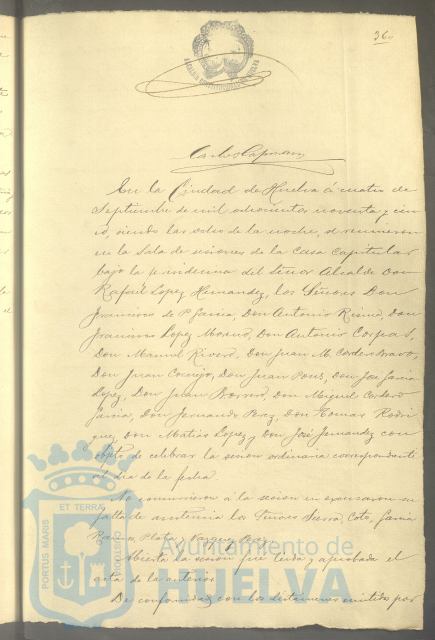 36
En la Ciudad de Huelva á cuatro de
Septiembre de mil ochocientos noventa y cin
co, siendo las ocho de la noche, se reunieron
en la Sala de sesiones de la Casa Capitular
bajo la presidencia del Señor Alcalde Don
Rafael Lopez Hernandez, los Señores Don
Francisco de P. García, Don Antonio Don
Francisco Lopez Moreno, Don Antonio Corpas,
Don Manuel Rivero, Don Juan M. Cordero Bravo,
Don Juan Cornejo, Don Juan Pons, Don José García
Lopez, Don Juan Borrero, Don Miguel Cordero
García, Don Fernando Perez, Don Tomas Rodri
guez, Don Matias Lopez y Don José Fernandez con
objeto de celebrar la sesion ordinaria correspondiente
al dia de la fecha
No concurrieron á la sesion ni excusaron su
falta de asistencia los Señores Sierra, Coto, García
Ramos, Plata, Vazquez Perez
Abierta la sesion fué leida y aprobada el
acta de la anterior
De conformidad con los dictámenes emitidos por
PORTUS MARIS
ET TERRAE
CUSTODIA
Ayuntamiento de
HUELVA